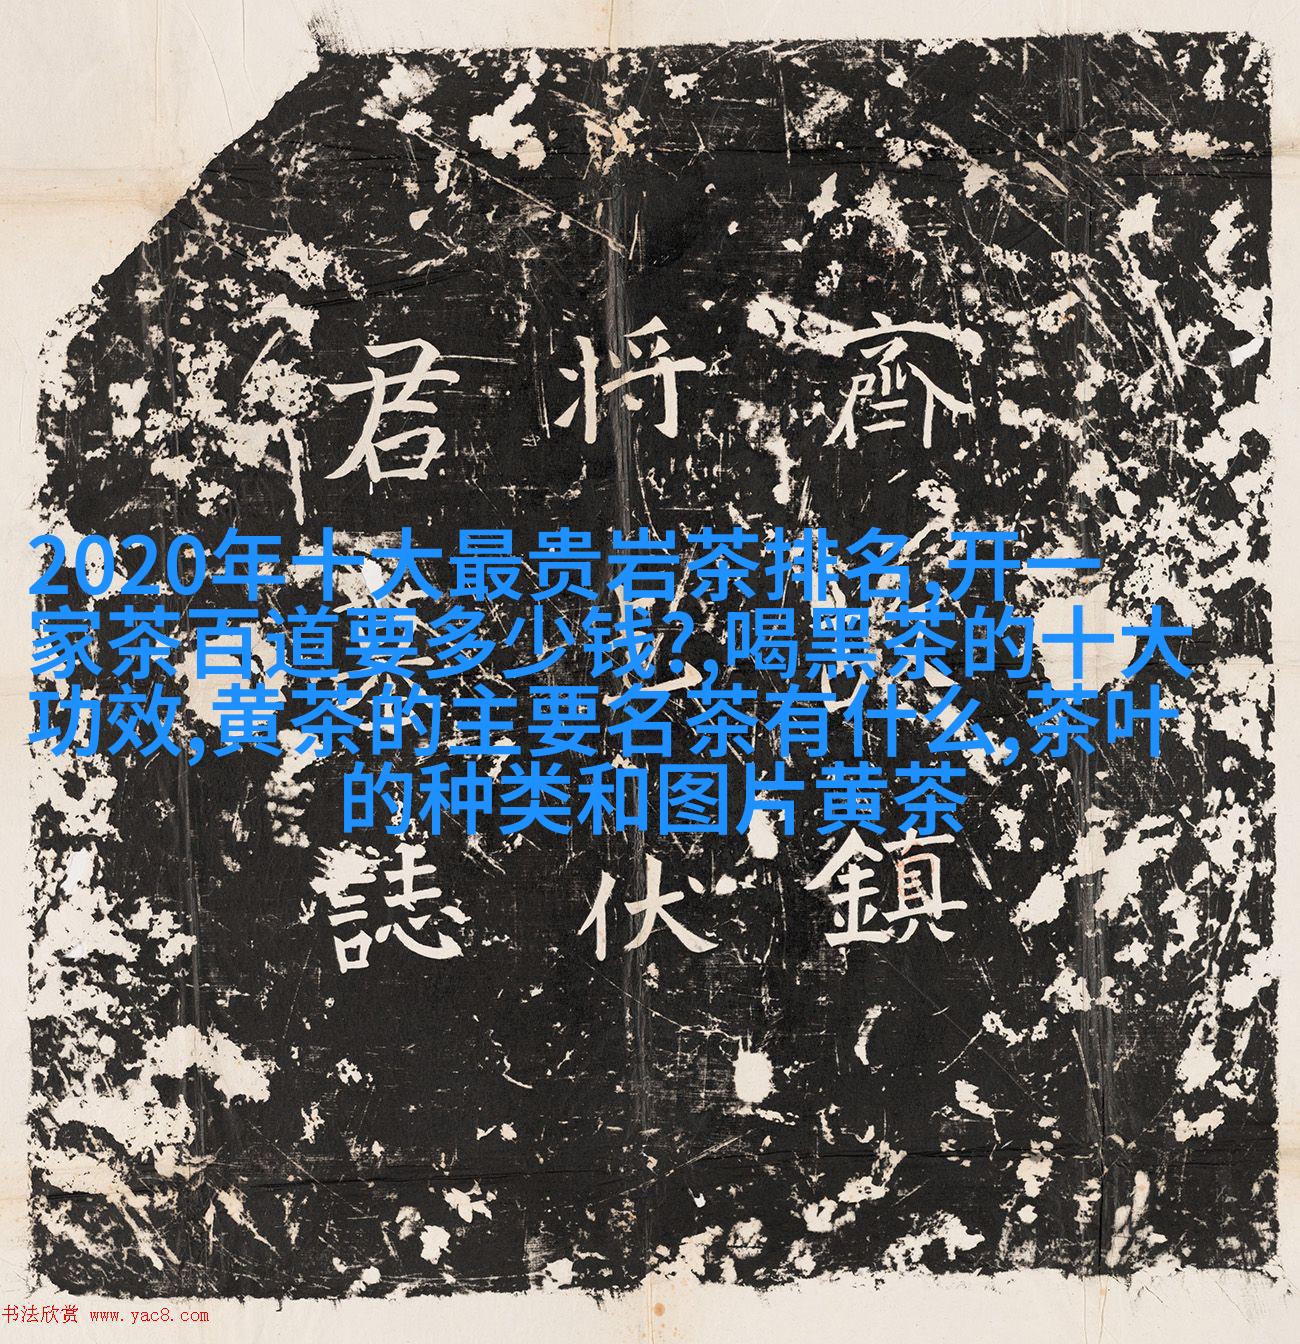 齊
鎮
将
伏
君
誌
2020年十大最贵岩茶排名,开一
家茶百道要多少钱?,喝黑茶的十大
功效,黄茶的主要名茶有什么,茶叶
的种类和图片黄茶
书法欣赏 www.yac8.com